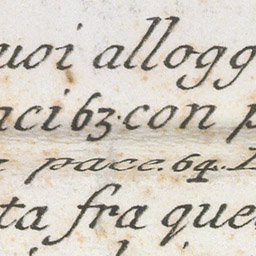 uoi allogg
aci 63. con p
a pace. 64. I
ta fra que